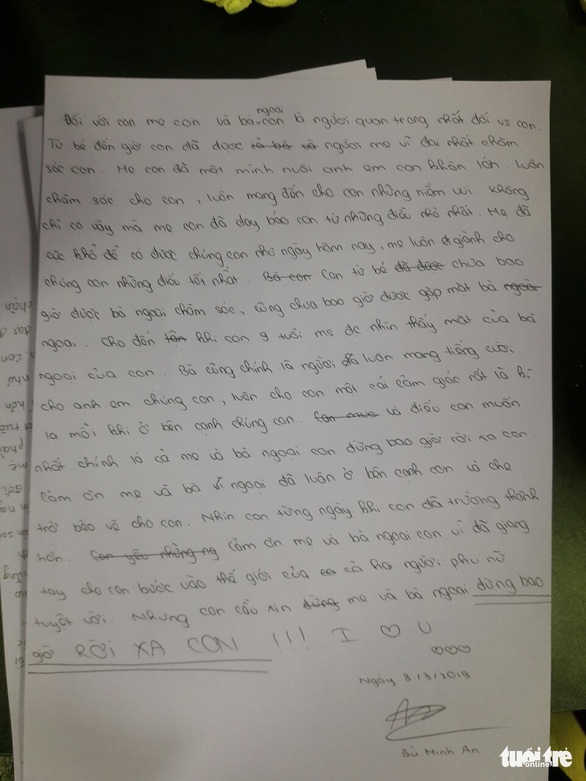 ngoại
Đối với con mẹ con và bà con là người quan trọng nhất đối vs con.
Từ bé đến giờ con đã được người mẹ vĩ đại nhất chăm
sóc con. Mẹ con đã một mình nuôi anh em con khôn lớn. Luôn
chăm sóc cho con, luôn mang đến cho con những niềm vui. Không
chỉ có vậy mà mẹ con đã dạy bảo con từ những điều nhỏ nhất. Mẹ đã
cực khổ để có được chúng con như ngày hôm nay, mẹ luôn giành cho
chúng con những điều tốt nhất. Bà con Con từ bé đã được chưa bao
giờ được bà ngoại chăm sóc, cũng chưa bao giờ được gặp mặt bà ngoài
ngoại. Cho đến khi con 9 tuổi mẹ đc nhìn thấy mặt của bà
ngoại của con. Bà cũng chính là người đã luôn mang tiếng cười
cho anh em chúng con, luôn cho con một cái cảm giác rất là kì
lạ mỗi khi ở bên cạnh chúng con. Con muo và điều con muốn
nhất chính là cả mẹ và bà ngoại con đừng bao giờ rời xa con
cảm ơn mẹ và bà ngoại đã luôn ở bên cạnh con và che
trở bảo vệ cho con. Nhìn con từng ngày khi con đã trưởng thành
hơn. Con yêu những ng cảm ơn mẹ và bà ngoại con vì đã giang
tay cho con bước vào thế giới của cả hai người phụ nữ
tuyệt vời. Nhưng con cầu xin đừng mẹ và bà ngoại đừng bao
giờ RỜI XA CON !!! I ♡ U
♡♡♡
Ngày 8/3/2019
Bùi Minh An
tuổi trẻ
online